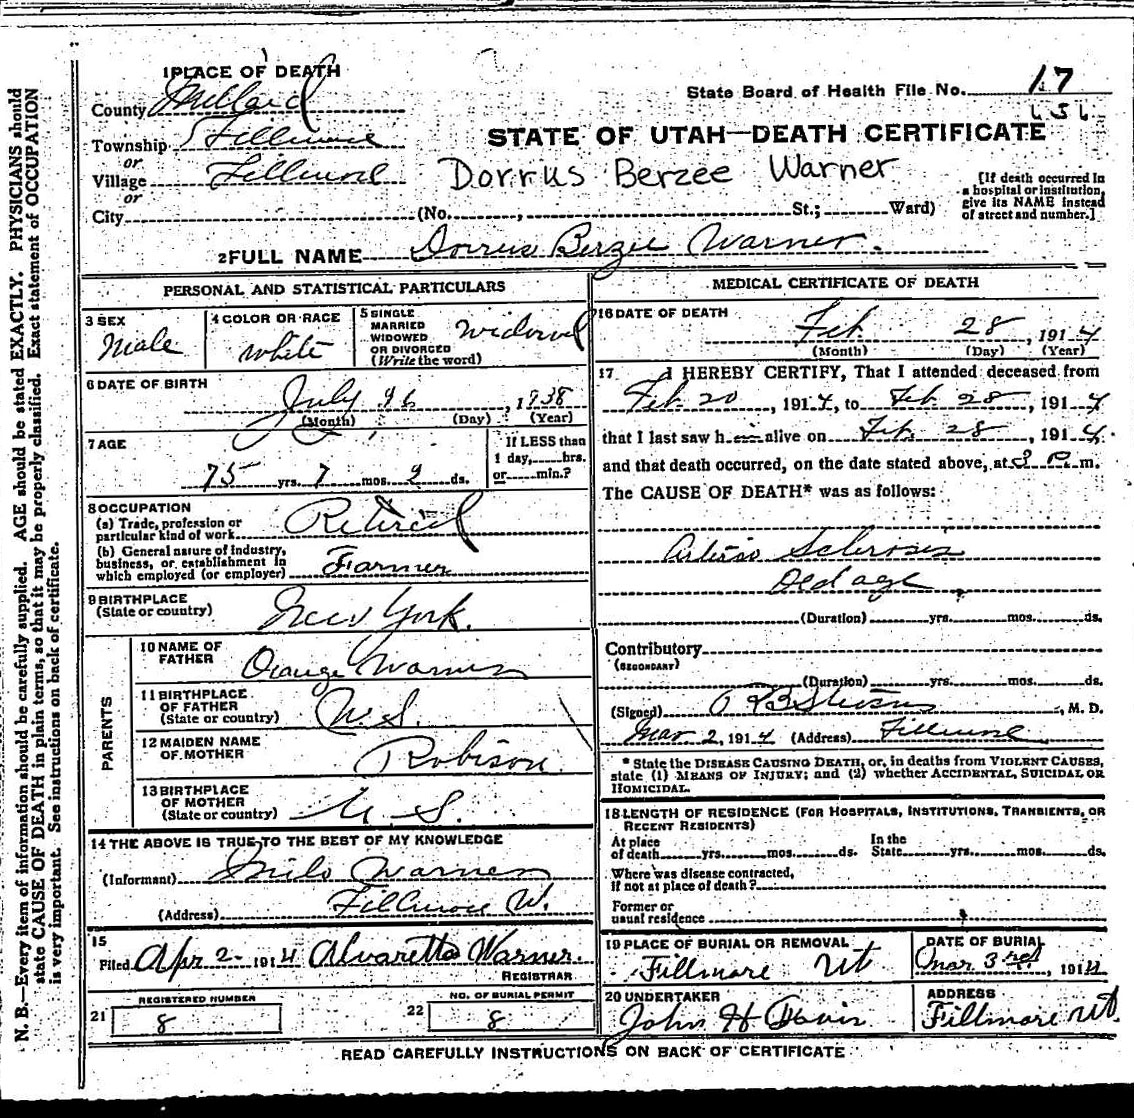 1 PLACE OF DEATH
County Millard
State Board of Health File No. 17
151
Township Fillmore
or
Village Fillmore
or
STATE OF UTAH—DEATH CERTIFICATE
Dorrus Berzee Warner
City (No. , St.; Ward)
[If death occurred in
a hospital or institution,
give its NAME instead
of street and number.]
2 FULL NAME Dorrus Berzee Warner.
PERSONAL AND STATISTICAL PARTICULARS
3 SEX
Male
4 COLOR OR RACE
White
5 SINGLE
MARRIED
WIDOWED
OR DIVORCED
(Write the word)
Widowed
6 DATE OF BIRTH
July 26, 1838
(Month) (Day) (Year)
7 AGE
75 yrs. 7 mos. 2 ds.
If LESS than
1 day, hrs.
or min.?
8 OCCUPATION
(a) Trade, profession or
particular kind of work Retired
(b) General nature of industry,
business, or establishment in
which employed (or employer) Farmer
9 BIRTHPLACE
(State or country) New York.
PARENTS
10 NAME OF
FATHER Orange Warner
11 BIRTHPLACE
OF FATHER
(State or country) U.S.
12 MAIDEN NAME
OF MOTHER Robison
13 BIRTHPLACE
OF MOTHER
(State or country) U.S.
14 THE ABOVE IS TRUE TO THE BEST OF MY KNOWLEDGE
(Informant) Milo Warner
(Address) Fillmore U.
15
Filed Apr 2- 1914 Alvaretta Warner.
REGISTRAR
REGISTERED NUMBER
21 8
NO. OF BURIAL PERMIT
22 8
MEDICAL CERTIFICATE OF DEATH
16 DATE OF DEATH
Feb. 28, 1914
(Month) (Day) (Year)
17 I HEREBY CERTIFY, That I attended deceased from
Feb. 20, 1914, to Feb. 28, 1914
that I last saw h im alive on Feb. 28, 1914.
and that death occurred, on the date stated above, at 3 P.m.
The CAUSE OF DEATH* was as follows:
Arterio Sclerosis
Old age
(Duration) yrs. mos. ds.
Contributory
(SECONDARY)
(Duration) yrs. mos. ds.
(Signed) Stevens, M. D.
Mar 2, 1914 (Address) Fillmore
* State the DISEASE CAUSING DEATH, or, in deaths from VIOLENT CAUSES,
state (1) MEANS OF INJURY; and (2) whether ACCIDENTAL, SUICIDAL OR
HOMICIDAL.
18 LENGTH OF RESIDENCE (FOR HOSPITALS, INSTITUTIONS, TRANSIENTS, OR
RECENT RESIDENTS)
At place
of death yrs. mos. ds.
In the
State yrs. mos. ds.
Where was disease contracted,
if not at place of death?
Former or
usual residence
19 PLACE OF BURIAL OR REMOVAL
Fillmore Ut
DATE OF BURIAL
Mar 3rd, 1914
20 UNDERTAKER
John H Davis
ADDRESS
Fillmore Ut
READ CAREFULLY INSTRUCTIONS ON BACK OF CERTIFICATE
N. B.—Every item of information should be carefully supplied. AGE should be stated EXACTLY. PHYSICIANS should
state CAUSE OF DEATH in plain terms, so that it may be properly classified. Exact statement of OCCUPATION
is very important. See instructions on back of certificate.